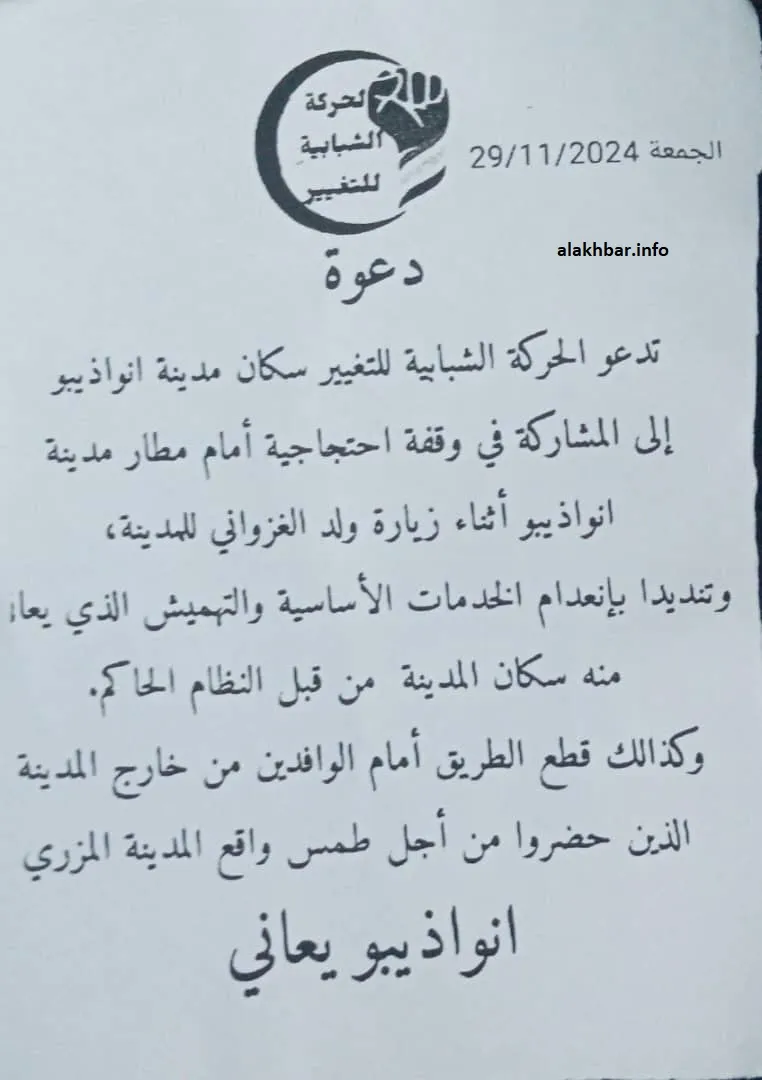 الحركة
الشبابية
للتغيير
الجمعة 29/11/2024
alakhbar.info
دعوة
تدعو الحركة الشبابية للتغيير سكان مدينة انواذيبو
إلى المشاركة في وقفة احتجاجية أمام مطار مدينة
انواذيبو أثناء زيارة ولد الغزواني للمدينة،
وتنديدا بإنعدام الخدمات الأساسية والتهميش الذي
منه سكان المدينة من قبل النظام الحاكم.
وكذالك قطع الطريق أمام الوافدين من خارج المدينة
الذين حضروا من أجل طمس واقع المدينة المزري
انواذيبو يعاني